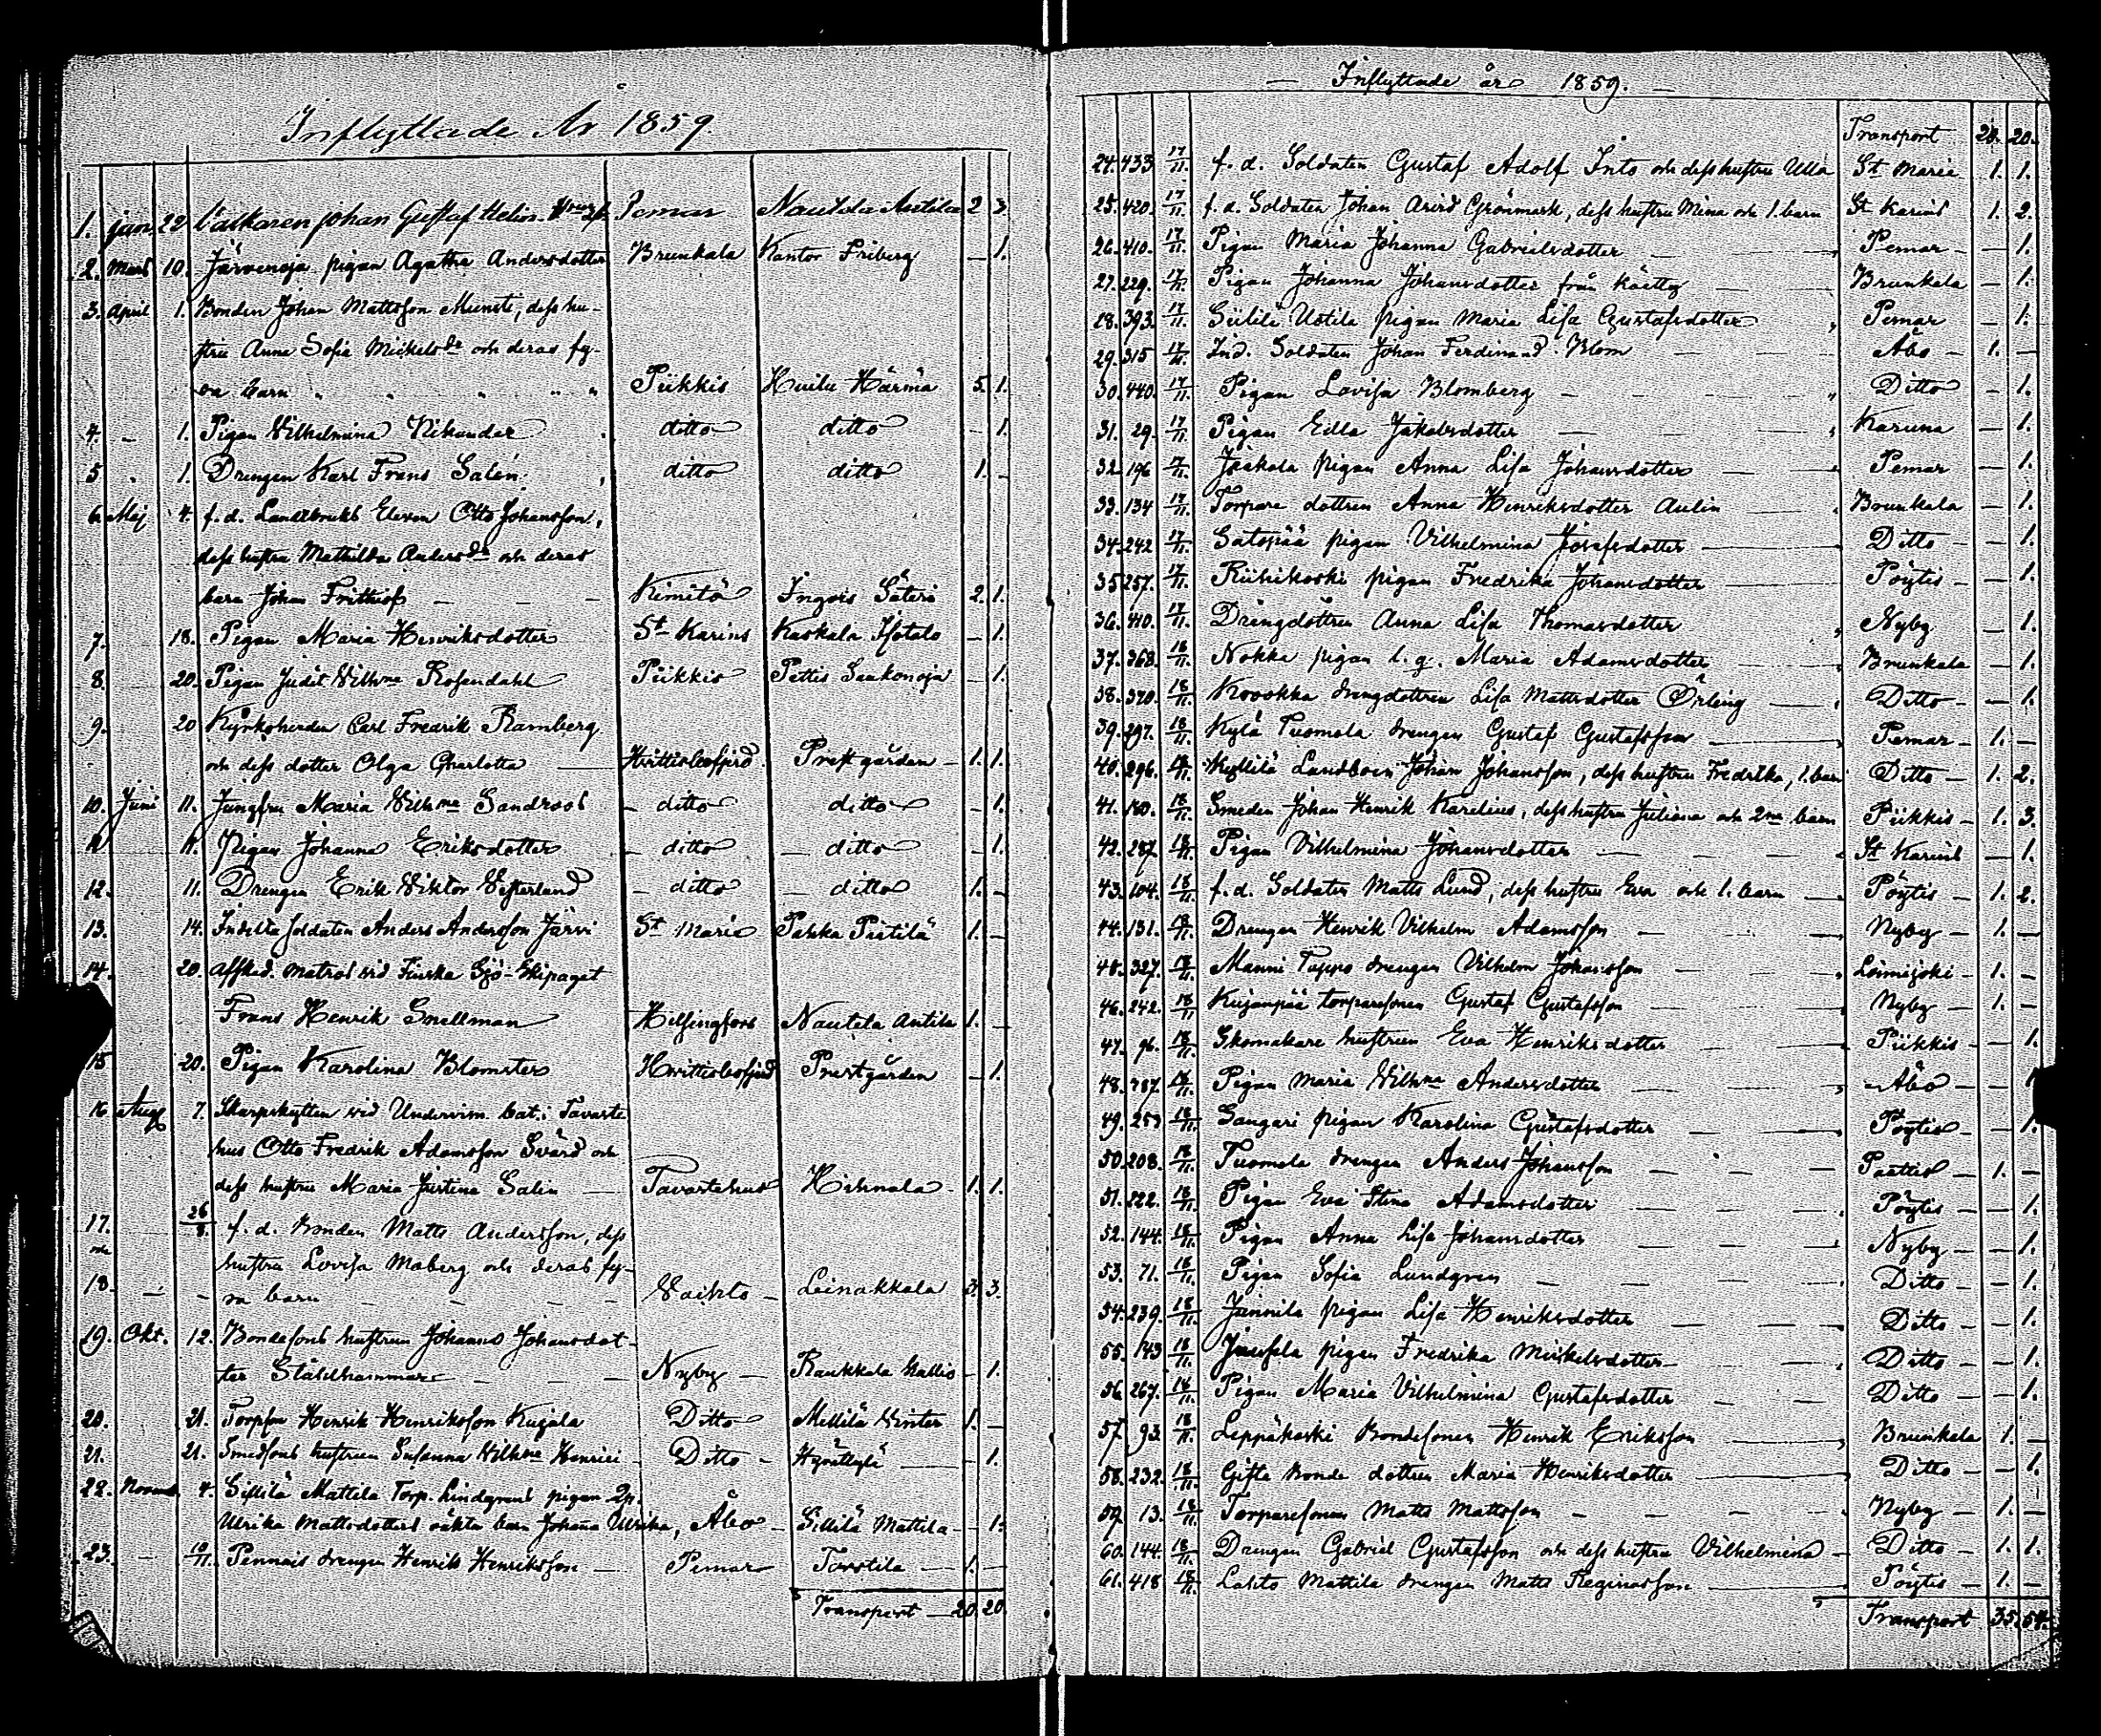 Inflyttade År 1859.
1. jan. 22 Johan Gustaf Helin Pemar Nautila Antila 2 3.
2. Mars 10. Järvenoja pigan Agatha Andersdotter Brunkala Kantor Friberg – 1.
3. April 1. Bonden Johan Mattsson Munsti, dess hu-
stru Anna Sofia Mickelsdr och deras fy-
ra barn Piikkis Huilu Härmä 5. 1.
4. – 1. Pigan Wilhelmina Nikander ditto ditto – 1.
5 1. Drengen Karl Frans Salén ditto ditto 1. –
6. Maj 4. f. d. Landtbruks Eleven Otto Johansson,
dess hustru Mathilda Andersdr och deras
barn Johan Frithiof – – – Kimito Ingois Säteri 2. 1.
7. 18. Pigan Maria Henriksdotter St Karins Kaskala Isotalo – 1.
8. 20. Pigan Judit Wilhma Rosendahl Piikkis Pettis Saukonoja – 1.
9. 20 Kyrkoherden Carl Fredrik Ramberg
och dess dotter Olga Charlotta Hvittisbofjerd Prestgården – 1. 1.
10. Juni 11. Jungfru Maria Wilhma Sandroos – ditto ditto – 1.
11 11. Pigan Johanna Eriksdotter – ditto – ditto – 1.
12. 11. Drengen Erik Wiktor Westerlund – ditto – ditto 1. –
13. 14. Indelta soldaten Anders Andersson Järvi St Marie Pahka Piitilä 1. –
14. 20. Afsked. matros vid Finska Sjö-Ekipaget
Frans Henrik Snellman Helsingfors Nautela Antila 1. –
15 20. Pigan Karolina Blomster Hvittisbofjerd Prestgården – 1.
16 Aug. 7. Skarpskytten vid Undervisn. bat. i Tavaste
hus Otto Fredrik Adamsson Svärd och
dess hustru Maria Justina Salin Tavastehus Hihnala 1. 1.
17. 26/8. f. d. bonden Matts Andersson, dess
och hustru Lovisa Moberg och deras fy-
18. – – ra barn – – – Vaihto – Leinakkala 3. 3.
19. Okt. 12. Bondesons hustrun Johanna Johansdot-
ter Stålhammar – – Nyby – Raukkala Mattis – 1.
20. 21. Torpson Henrik Henriksson Kujala Ditto Mellilä Winter 1. –
21. 21. Smedsons hustrun Susanna Wilhma Henrici Ditto – – 1.
22. Novemb. 4. Sillilä Mattila Torp. Lindgrens pigan
Ulrika Mattsdotters oäkta barn Johanna Ulrika, Åbo – Sillilä Mattila – – 1.
23. – 10/11. Pennais drengen Henrik Henriksson – Pemar Torstila 1. –
Transport – 20. 20
– Inflyttade år 1859. –
Transport 20. 20.
24. 433. 17/11. f. d. Soldaten Gustaf Adolf Into och dess hustru Ulla St Marie 1. 1.
25. 420. 17/11. f. d. Soldaten Johan Arvid Grönmark, dess hustru Mina och 1. barn St Karins 1. 2.
26. 410. 17/11. Pigan Maria Johanna Gabrielsdotter – Pemar – 1.
27. 229. 17/11. Pigan Johanna Johansdotter från Käetty – Brunkala – 1.
28. 393. 17/11. Siililä Uotila pigan Maria Lisa Gustafsdotter Pemar – 1.
29. 315 17/11. Ind. Soldaten Johan Ferdinand Blom – – Åbo – 1. –
30. 440. 17/11. Pigan Lovisa Blomberg – – Ditto – 1.
31. 29. 17/11. Pigan Eilla Jakobsdotter – – Karuna – 1.
32. 196 17/11. Jaakola pigan Anna Lisa Johansdotter – Pemar – 1.
33. 134 17/11. Torpare dottren Anna Henriksdotter Aulin – Brunkala – 1.
34. 242 17/11. Satopää pigan Vilhelmina Josefsdotter – Ditto – 1.
35 257. 17/11. Riihikoski pigan Fredrika Johansdotter – Pöytis – 1.
36. 410. 17/11. Drängdottren Anna Lisa Thomasdotter Nyby – 1.
37. 368. 18/11. Nokka pigan l. g. Maria Adamsdotter – Brunkala – 1.
38. 370. 18/11. Kovokka drengdottren Lisa Mattsdotter Örling – Ditto – 1.
39. 297. 18/11. Kylä Tuomola drengen Gustaf Gustafsson – Pemar – 1. –
40. 296. 18/11. Kyllilä Landboen Johan Johansson, dess hustru Fredrika, 1. barn Ditto – 1. 2.
41. 180. 18/11. Smeden Johan Henrik Karelius, dess hustru Juliana och 2ne barn Piikkis – 1. 3.
42. 287. 18/11. Pigan Vilhelmina Johansdotter – – St Karins – 1.
43. 104. 18/11. f. d. Soldaten Matts Lund, dess hustru Eva och 1. barn – Pöytis – 1. 2.
44. 131. 18/11. Drengen Henrik Vilhelm Adamsson – – Nyby – 1. –
45. 327. 18/11. Manni Tuppo drengen Vilhelm Johansson – – Loimijoki – 1. –
46. 242. 18/11 Kujanpää torparesonen Gustaf Gustafsson – – Nyby – 1. –
47. 96. 18/11. Skomakare hustrun Eva Henriksdotter – – Piikkis – 1.
48. 787. 18/11. Pigan Maria Wilhma Andersdotter – – Åbo – 1
49. 253 18/11. Sangari pigan Karolina Gustafsdotter – – Pöytis – 1.
50. 208. 18/11. Tuomola drengen Anders Johansson – – – Paattis – 1. –
51. 222. 18/11. Pigan Eva Stina Adamsdotter – – Pöytis – 1.
52. 144. 18/11. Pigan Anna Lisa Johansdotter – – Nyby – – 1.
53. 71. 18/11. Pigan Sofia Lundgren – – – Ditto – – 1.
54. 239. 18/11. Junnila pigan Lisa Henriksdotter – – Ditto – – 1.
55. 143 18/11. Juusela pigan Fredrika Mickelsdotter – – Ditto – – 1.
56 267. 18/11. Pigan Maria Vilhelmina Gustafsdotter – – Ditto – – 1.
57 93. 18/11. Leppäkoski bondesonen Henrik Eriksson – Brunkala 1. –
58. 232. 18/11. Gifta bonde dottren Maria Henriksdotter – Ditto – – 1.
59 13. 18/11. Torparesonen Matts Mattsson – – – Nyby – 1. –
60. 144. 18/11. Drengen Gabriel Gustafsson och dess hustru Vilhelmina – Ditto – 1. 1.
61. 418 18/11. Lahto Mattila drengen Matts Reginasson – Pöytis – 1. –
Transport 35. 54.